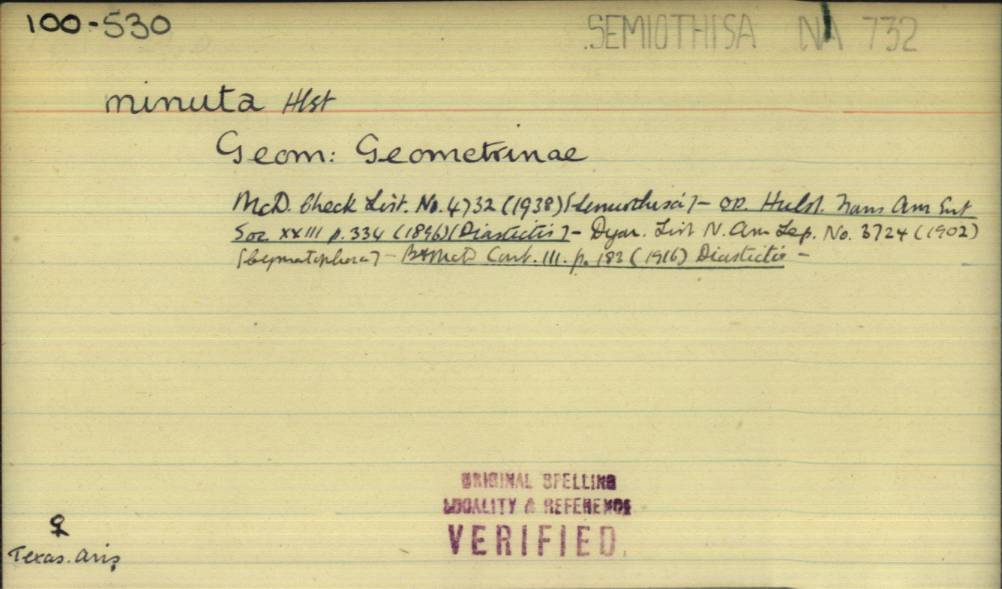 100-530
SEMIOTHISA NA 732
minuta Hlst
Geom: Geometrinae
McD. Check List. No. 4732 (1938) [Semiothisa] - op. Hulst. Trans Am Ent
Soc. XXIII p. 334 (1896) (Diastictis] - Dyar. List N. Am Lep. No. 3724 (1902)
[Cymatophora] - B&McD Cont. III. p. 183 (1916) Diastictis -
ORIGINAL SPELLING
LOCALITY & REFERENCE
VERIFIED.
♀
Texas. Ariz